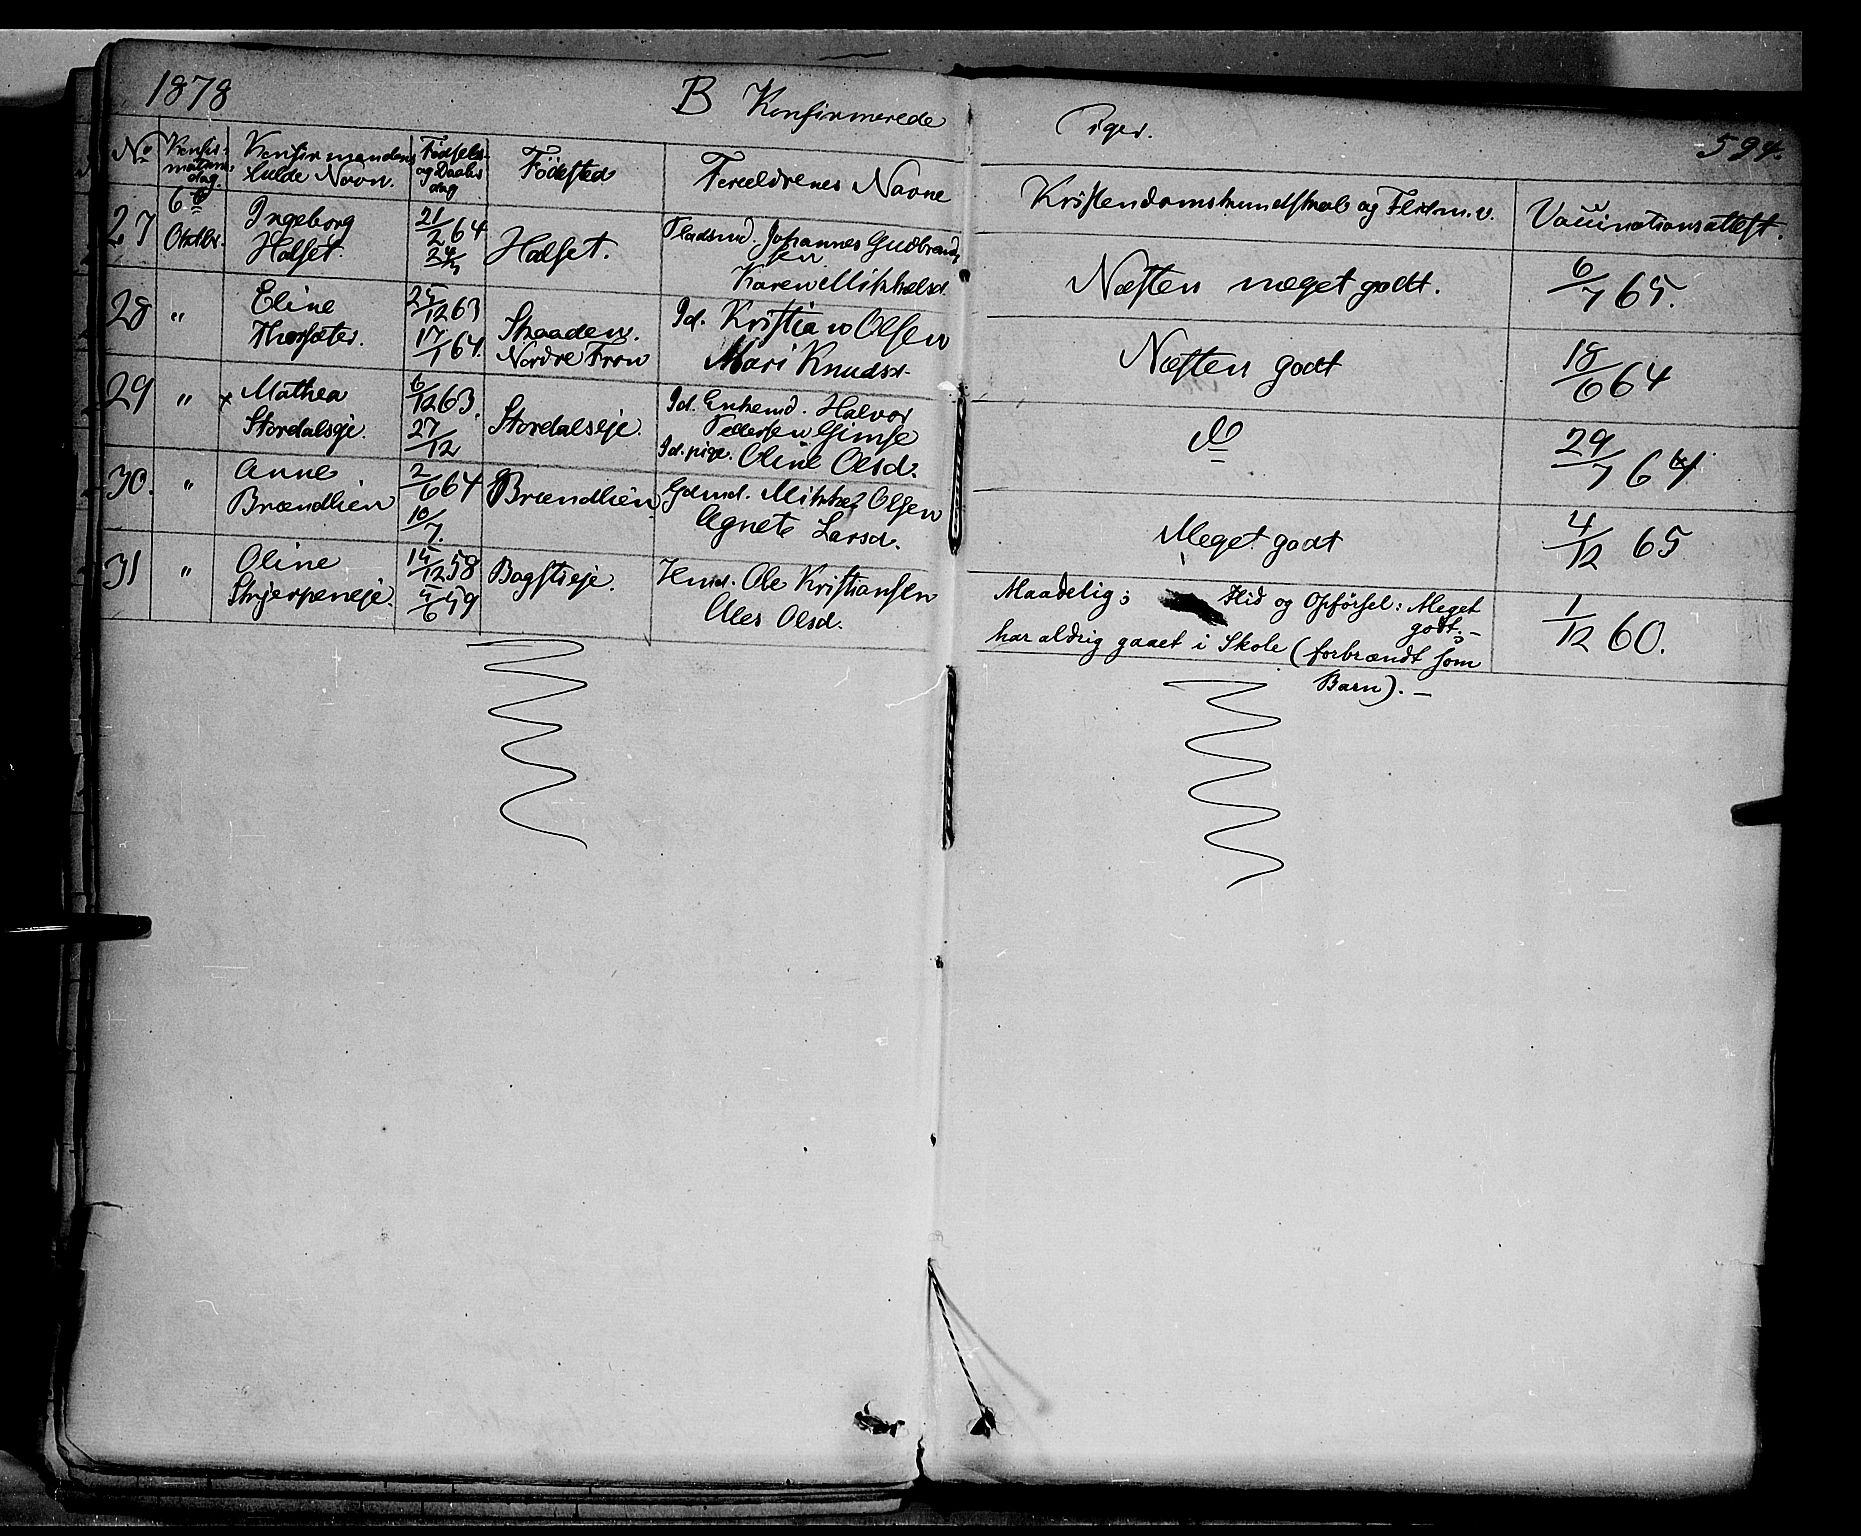 1878 B Konfirmerede Piger. 594.
No Konfir-
mations
dag. Konfirmandens
fulde Navn. Fødsels-
og Daabs
dag Fødested Forældrenes Navne Kristendomskundskab og Flid m. v. Vaccinationsattest.
27 6te
Oktbr. Ingeborg
Halset. 21/2 64
24/3 Halset. Pladsmd. Johannes Gudbrands
sen
Karen Mikkelsd. Næsten meget godt. 6/7 65.
28 " Eline
Thorsæter. 25/12 63
17/1 64. Skaaden.
Nordre Fron Id. Kristian Olsen
Mari Knudsd. Næsten godt 18/6 64
29 " x Mathea
Stordalseje. 6/12 63.
27/12 Stordalseje. Id. Enkemd. Halvor
Pedersen Gimse
Id. pige. Oline Olsd. do 29/7 64
30. " Anne
Brændlien 2/6 64
10/7. Brændlien Gdmd. Mikkel Olsen
Agnete Larsd. Meget godt 4/12 65
31 " Oline
Skjerpeneje. 15/12 58
5/6 59 Bagstieje. Hmd. Ole Kristiansen
Oles Olsd. Maadelig; Flid og Opførsel: Meget
godt; -
har aldrig gaaet i Skole (forbrændt som
Barn). - 1/12 60.